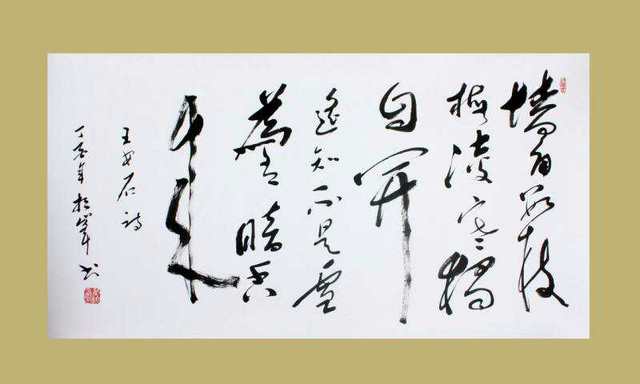 墙角数枝
梅凌寒独
自开
遥知不是雪
為有暗香
来
王安石诗
丁亥年 书